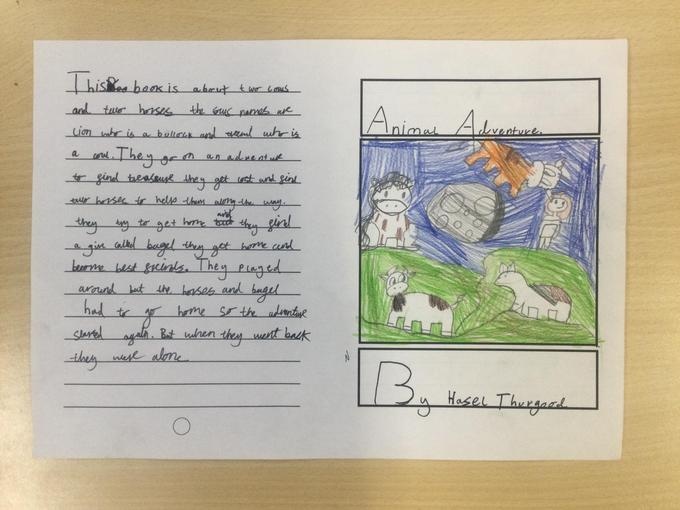 This book is about two cows
and two horses the cows names are
Lion who is a bullock and who is
a cow. They go on an adventure
to find treasure they get lost and find
two horses to help them along the way.
they try to get home and they find
a girl called bagel they get home and
become best friends. They played
around but the horses and bagel
had to go home so the adventure
started again. But when they went back
they were alone
Animal Adventure.
By Hasel Thurgood